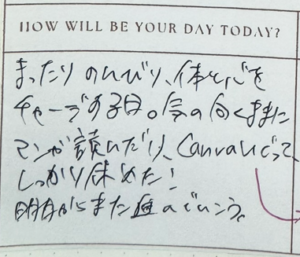 HOW WILL BE YOUR DAY TODAY?
まったりのんびり、体と心を
チャージする日。気の向くままに
マンガ読んだり、Canvaいじって、
しっかり休めた！
明日からまた進んでいこう。